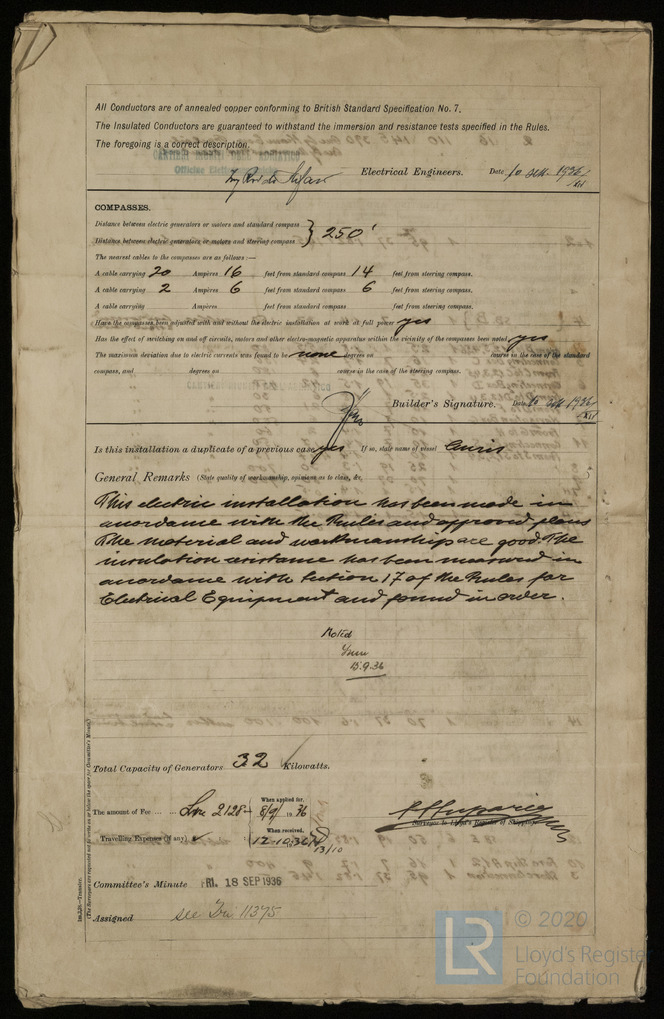 All Conductors are of annealed copper conforming to British Standard Specification No. 7.
The Insulated Conductors are guaranteed to withstand the immersion and resistance tests specified in the Rules.
The foregoing is a correct description.
Electrical Engineers. Date 10 Sett. 1936/XIV
COMPASSES.
Distance between electric generators or motors and standard compass
Distance between electric generators or motors and steering compass } 250'
The nearest cables to the compasses are as follows:—
A cable carrying 20 Ampères 16 feet from standard compass 14 feet from steering compass.
A cable carrying 2 Ampères 6 feet from standard compass 6 feet from steering compass.
A cable carrying Ampères feet from standard compass feet from steering compass.
Have the compasses been adjusted with and without the electric installation at work at full power yes
Has the effect of switching on and off circuits, motors and other electro-magnetic apparatus within the vicinity of the compasses been noted yes
The maximum deviation due to electric currents was found to be none degrees on course in the case of the standard
compass, and degrees on course in the case of the steering compass.
Builder's Signature. Date 10 Sett 1936/XIV
Is this installation a duplicate of a previous case yes If so, state name of vessel Auris
General Remarks (State quality of workmanship, opinions as to class, &c.
This electric installation has been made in
accordance with the Rules and approved plans
The material and workmanship are good. The
insulation resistance has been measured in
accordance with section 17 of the Rules for
Electrical Equipment and found in order.
Noted
15.9.36
Total Capacity of Generators 32 Kilowatts.
The amount of Fee ... ... Lire 2128- When applied for, 8/9/1936
Travelling Expenses (if any) When received, 12-10-1936 13/10
Surveyor to Lloyd's Register of Shipping.
Committee's Minute FRI. 18 SEP 1936
Assigned see Tri 11375
(The Surveyors are requested not to write on or below the space for Committee's Minute.)
© 2020
LR Lloyd's Register
Foundation